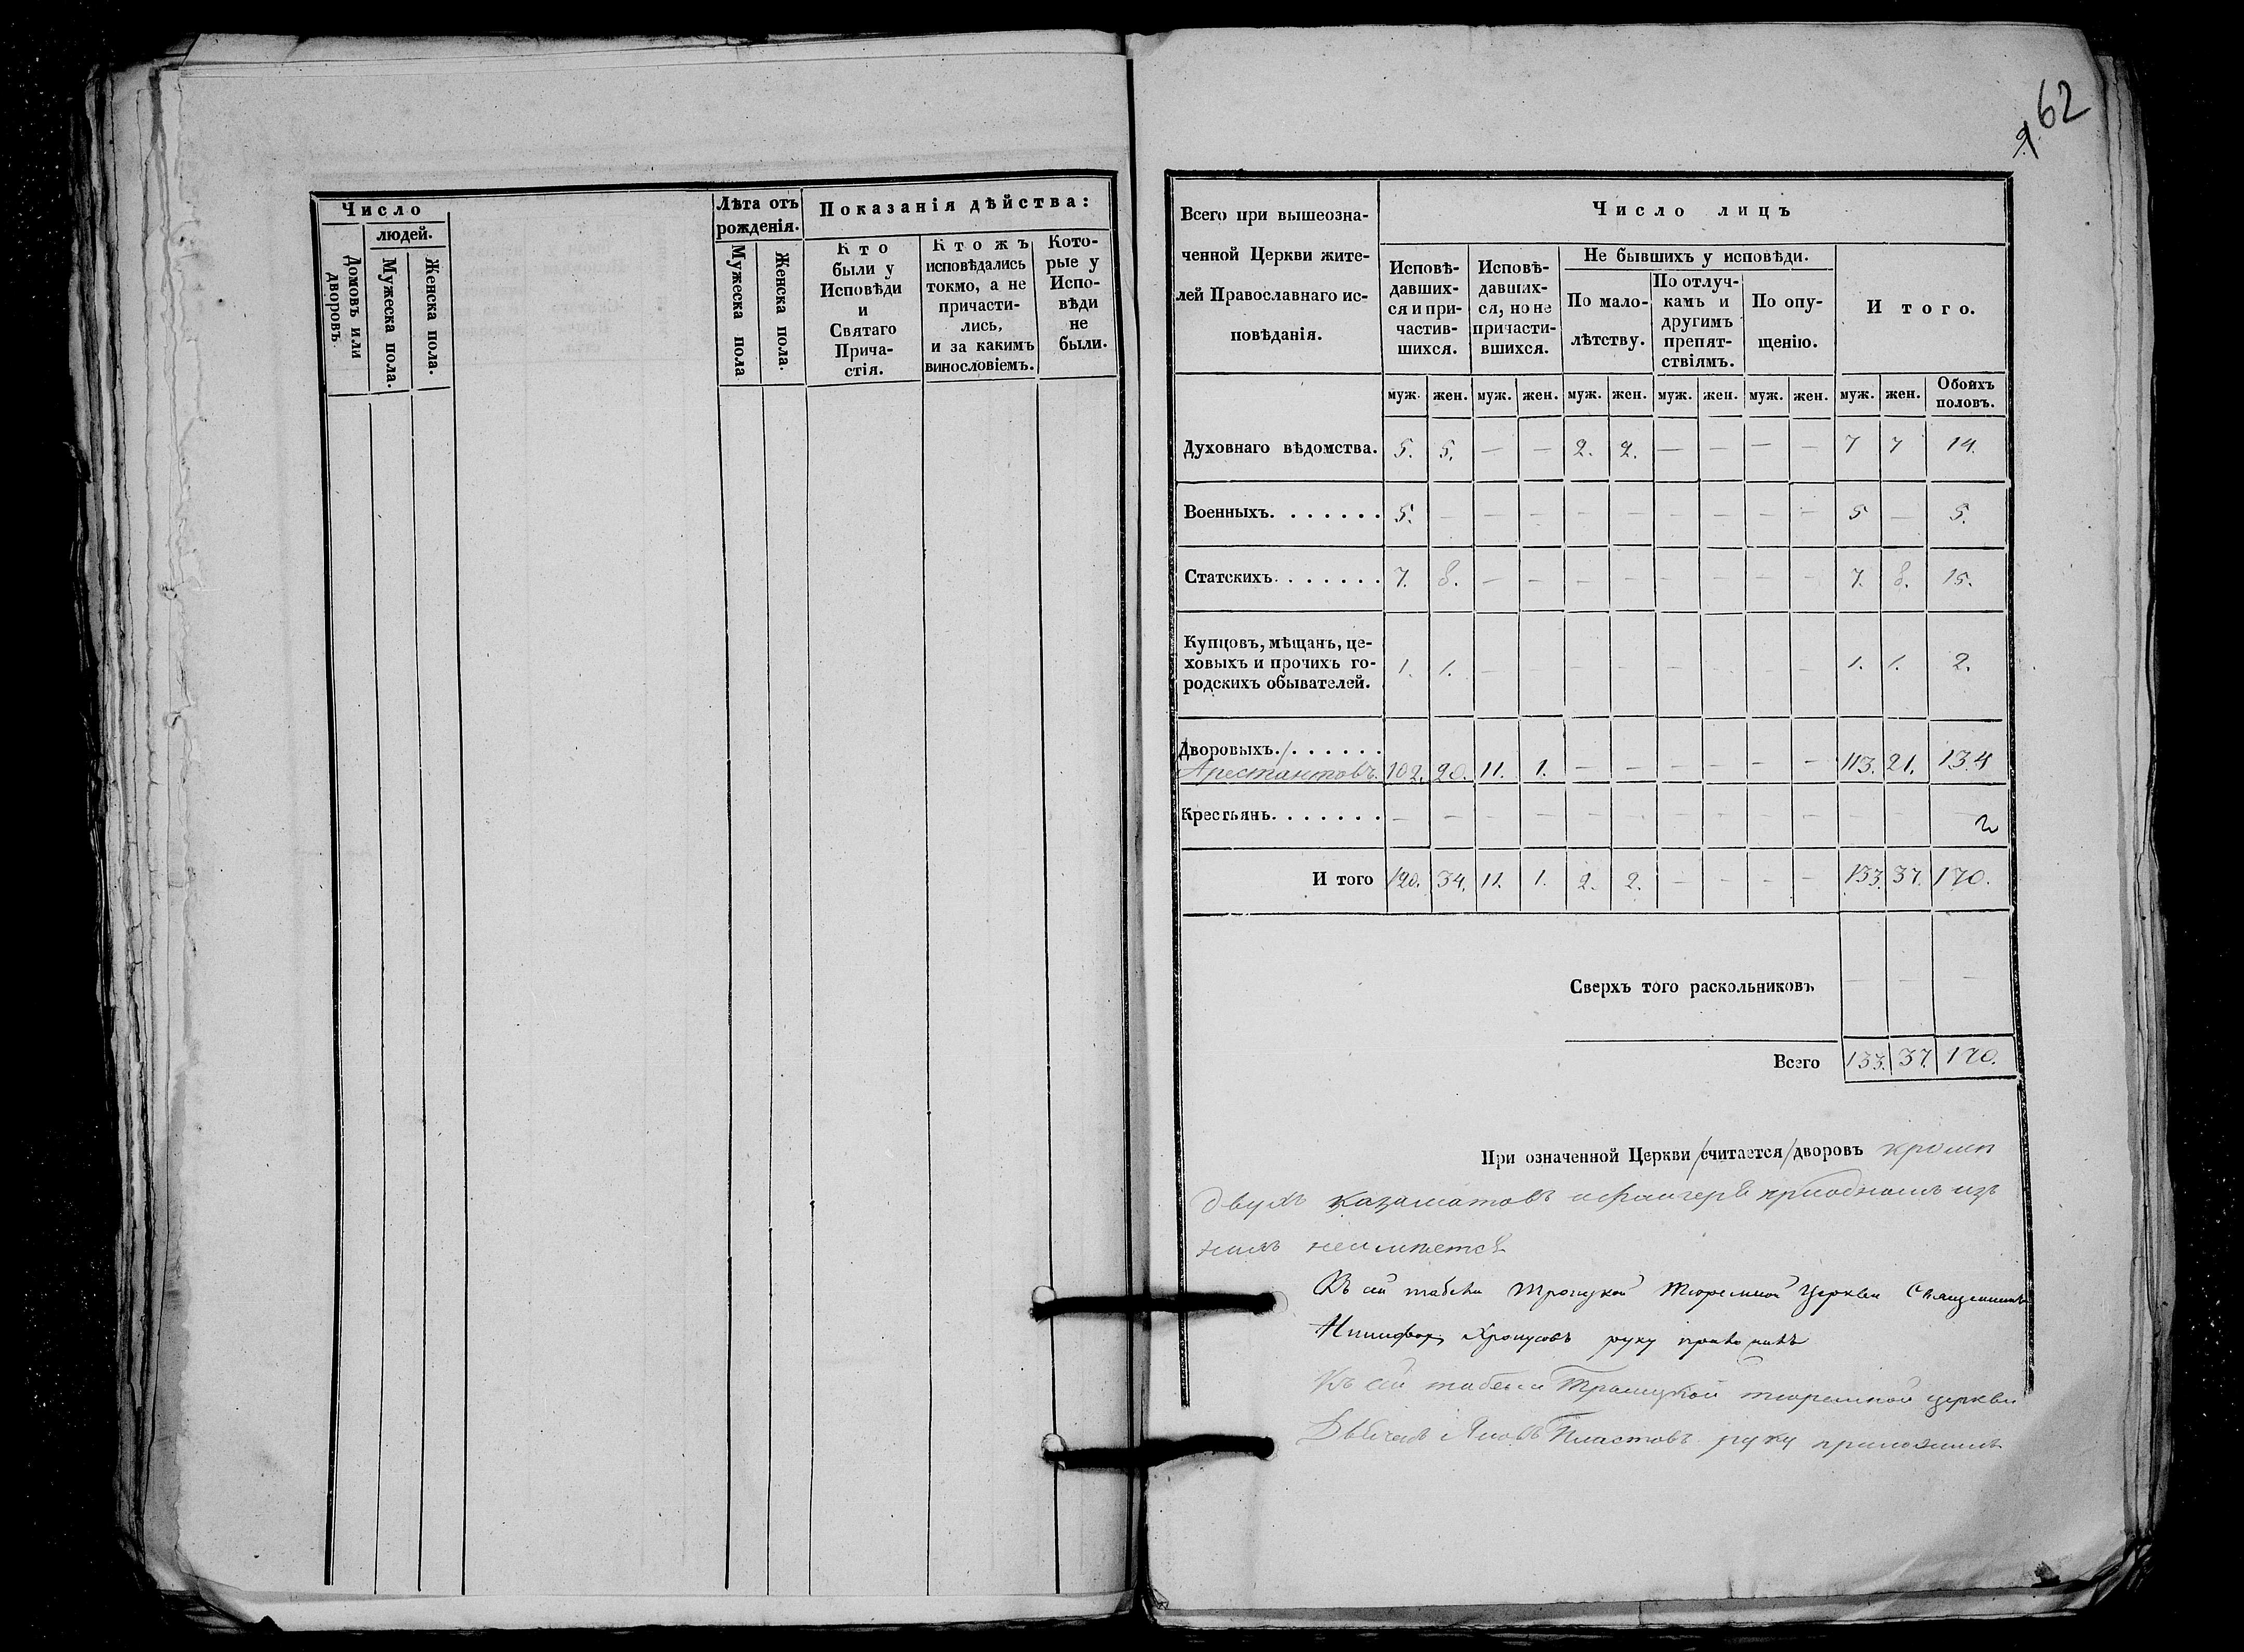 62
9
Число
людей.
Домовъ или дворовъ.
Мужеска пола.
Женска пола.
Лѣта отъ рожденія.
Мужеска пола
Женска пола.
Показанія дѣйства:
Кто
были у
Исповѣди
и
Святаго
Прича-
стія.
Ктожъ
исповѣдались
токмо, а не
причасти-
лись,
и за какимъ
винословіемъ.
Кото-
рые у
Испо-
вѣди
не
были.
Всего при вышеозна-
ченной Церкви жите-
лей Православнаго ис-
повѣданія.
Число лицъ
Исповѣ-
давших-
ся и при-
частив-
шихся.
Исповѣ-
давших-
ся, но не
причасти-
вшихся.
Не бывшихъ у исповѣди.
По мало-
лѣтству.
По отлуч-
камъ и
другимъ
препят-
ствіямъ.
По опу-
щенію.
И того.
муж. жен. муж. жен. муж. жен. муж. жен. муж. жен. муж. жен. Обоихъ половъ.
Духовнаго вѣдомства. 5. 5. — — 2. 2. — — — — 7 7 14.
Военныхъ. . . . . . . 5. — — — — — — — — — 5 — 5.
Статскихъ. . . . . . . 7. 8. — — — — — — — — 7. 8. 15.
Купцовъ, мѣщанъ, це-
ховыхъ и прочихъ го-
родскихъ обывателей. 1. 1. — — — — — — — — 1. 1. 2.
Дворовыхъ. . . . . . .
Арестантовъ. 102. 20. 11. 1. — — — — — — 113. 21. 134
Крестьянъ. . . . . . . — — — — — — — — — — — — —
И того 120. 34. 11. 1. 2. 2. — — — — 133. 37. 170.
Сверхъ того раскольниковъ — — —
Всего 133. 37. 170.
При означенной Церкви /считается/ дворовъ кромѣ
двухъ казематовъ и флигеря при одномъ изъ
нихъ неимѣется
Къ сей табели Троицкой Тюремной Церкви Священникъ
руку приложилъ
Къ сей табели Троицкой тюремной церкви
Дьячекъ Пластовъ руку приложилъ